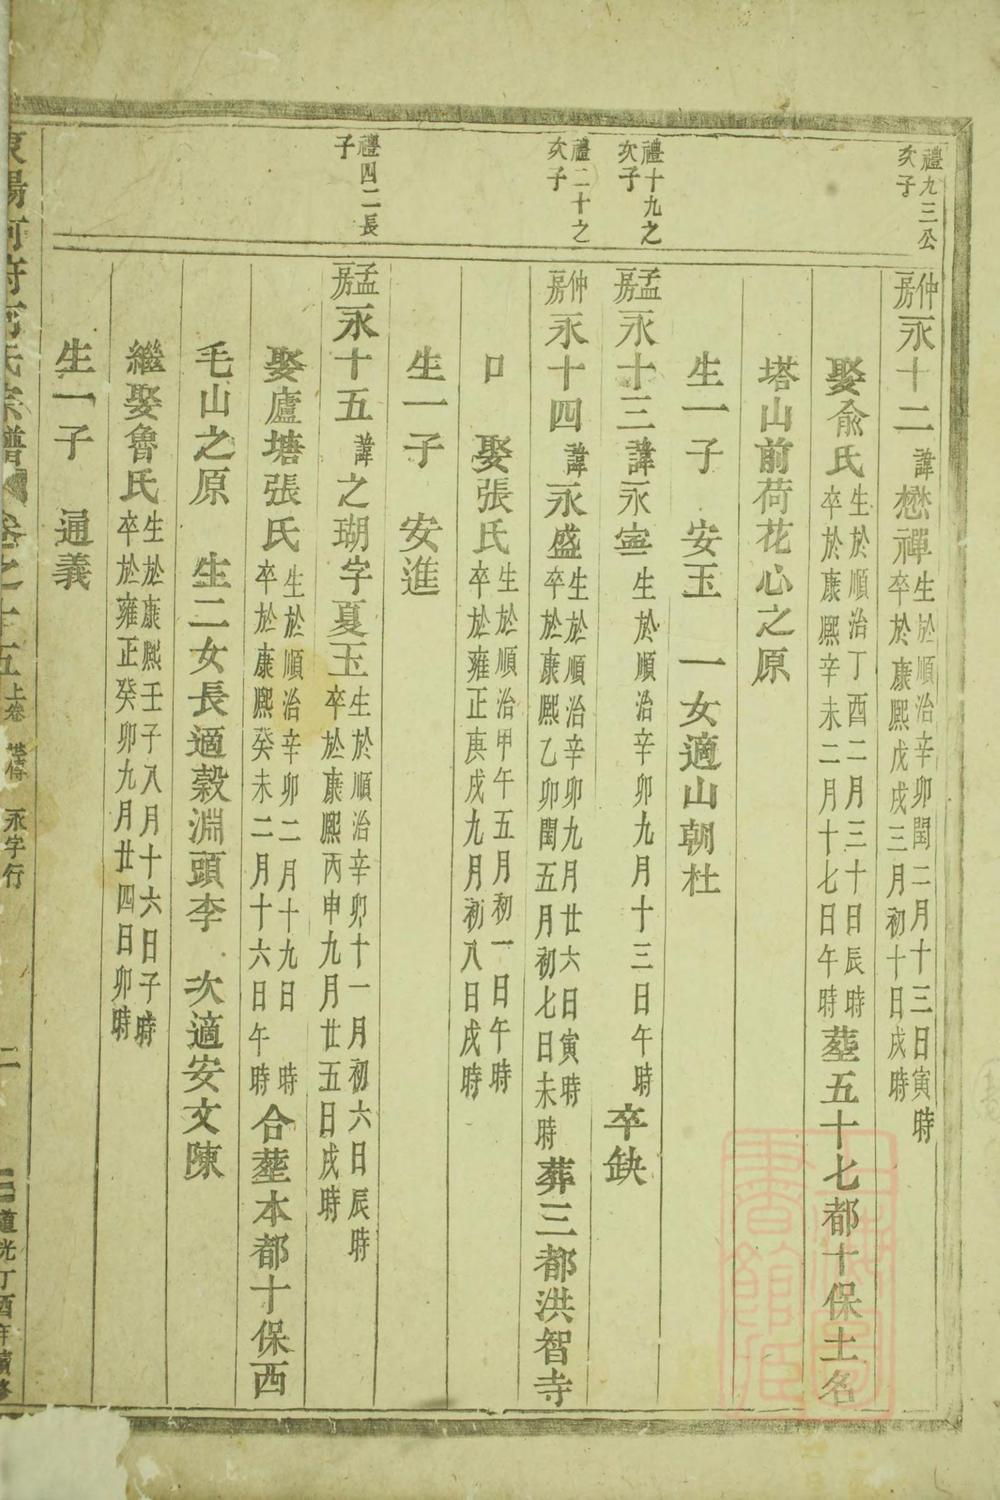 禮九三公
次子
仲房永十二諱懋禪生於順治辛卯閏二月十三日寅時
卒於康熙戊戌三月初十日戌時
娶俞氏生於順治丁酉二月三十日辰時
卒於康熙辛未二月十七日午時塟五十七都十保土名
塔山前荷花心之原
生一子 安玉 一女適山朝杜
禮十九之
次子
孟房永十三諱永寧生於順治辛卯九月十三日午時 卒缺
禮二十之
次子
仲房永十四諱永盛生於順治辛卯九月廿六日寅時
卒於康熙乙卯閏五月初七日未時葬三都洪智寺
口 娶張氏生於順治甲午五月初一日午時
卒於雍正庚戌九月初八日戌時
生一子 安進
禮四二長
子
孟房永十五諱之瑚字夏玉生於順治辛卯十一月初六日辰時
卒於康熙丙申九月廿五日戌時
娶廬塘張氏生於順治辛卯二月十九日 時
卒於康熙癸未二月十六日午時合塟本都十保西
毛山之原 生二女長適穀淵頭李 次適安文陳
繼娶魯氏生於康熙壬子八月十六日子時
卒於雍正癸卯九月廿四日卯時
生一子 通義
宗譜 卷之十五上卷 永字行 二 道光丁酉年續修